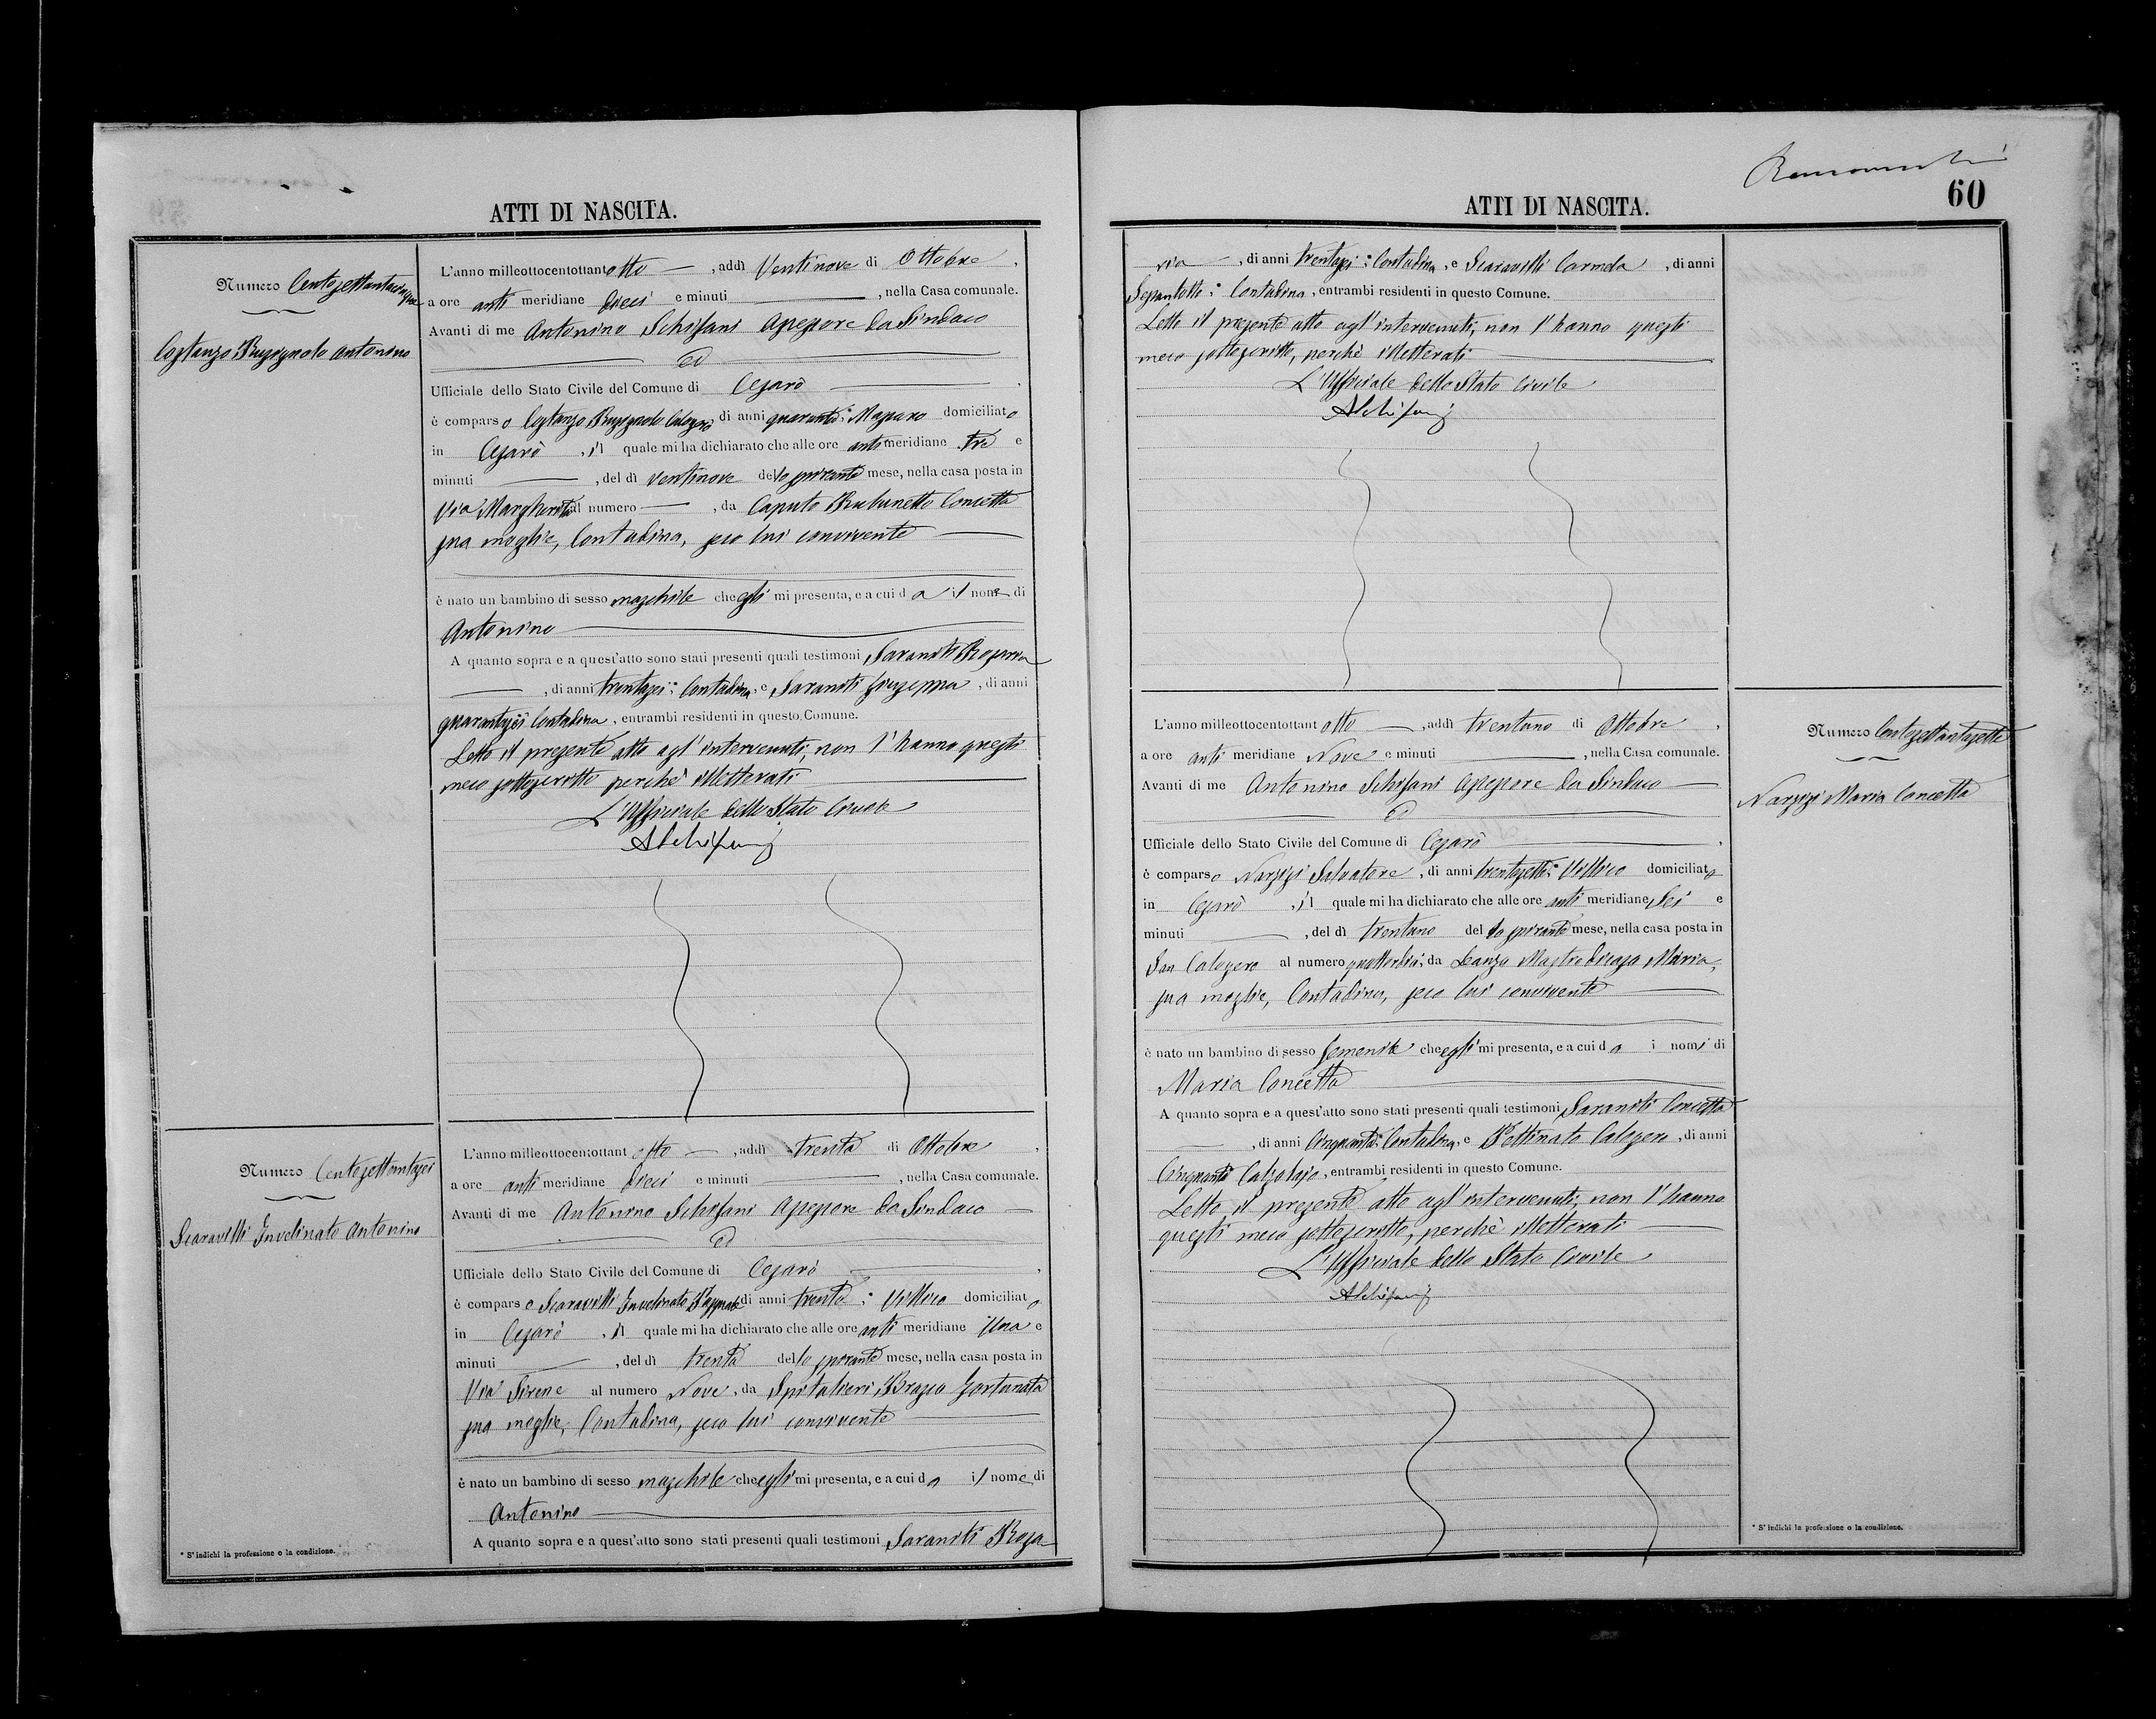 ATTI DI NASCITA.
Numero Centosettantacinque
Costanzo Bruzzignolo Antonino
L'anno milleottocentottantotto, addì Ventinove di Ottobre,
a ore anti meridiane dieci e minuti, nella Casa comunale.
Avanti di me Antonino Schifani Assessore da Sindaco
ed
Ufficiale dello Stato Civile del Comune di Cesarò
è comparso Costanzo Calogero di anni quaranta; Massaro domiciliato
in Cesarò, il quale mi ha dichiarato che alle ore anti meridiane tre e
minuti, del dì ventinove dello spirante mese, nella casa posta in
Via Margherita al numero, da Caputo Concetta
sua moglie, Contadina, seco lui convivente
è nato un bambino di sesso maschile che egli mi presenta, e a cui dà il nome di
Antonino
A quanto sopra e a quest'atto sono stati presenti quali testimoni Saraniti Rosaria
, di anni trentasei; Contadina, e Saraniti Giuseppa, di anni
quarantasei Contadina, entrambi residenti in questo Comune.
Letto il presente atto agl'intervenuti, non l'hanno questi
meco sottoscritto perchè illetterati
L'Uffiziale dello Stato Civile
ASchifani
Numero Centosettantasei
Scaravilli Invelinato Antonino
L'anno milleottocentottantotto, addì trenta di Ottobre,
a ore anti meridiane dieci e minuti, nella Casa comunale.
Avanti di me Antonino Schifani Assessore da Sindaco
ed
Ufficiale dello Stato Civile del Comune di Cesarò
è comparso Scaravilli Invelinato di anni trenta; Villico domiciliato
in Cesarò, il quale mi ha dichiarato che alle ore anti meridiane Una e
minuti, del dì trenta dello spirante mese, nella casa posta in
Via Sirene al numero Nove, da Spitalieri Fortunata
sua moglie, Contadina, seco lui convivente
è nato un bambino di sesso maschile che egli mi presenta, e a cui dà il nome di
Antonino
A quanto sopra e a quest'atto sono stati presenti quali testimoni Saraniti Rosa-
* S'indichi la professione o la condizione.
60
ATTI DI NASCITA.
ria, di anni trentasei; Contadina, e Scaravilli Carmela, di anni
Sessantotto; Contadina, entrambi residenti in questo Comune.
Letto il presente atto agl'intervenuti, non l'hanno questi
meco sottoscritto, perchè illetterati
L'Uffiziale dello Stato Civile
ASchifani
Numero Centosettantasette
Narzisi Maria Concetta
L'anno milleottocentottantotto, addì trentuno di Ottobre,
a ore anti meridiane Nove e minuti, nella Casa comunale.
Avanti di me Antonino Schifani Assessore da Sindaco
ed
Ufficiale dello Stato Civile del Comune di Cesarò
è comparso Narzisi Salvatore, di anni trentasette; Villico domiciliato
in Cesarò, il quale mi ha dichiarato che alle ore anti meridiane Sei e
minuti, del dì trentuno dello spirante mese, nella casa posta in
San Calogero al numero quattordici, da Leanza Mastrodicasa Maria,
sua moglie, Contadina, seco lui convivente
è nato un bambino di sesso femenile che egli mi presenta, e a cui dà i nomi di
Maria Concetta
A quanto sopra e a quest'atto sono stati presenti quali testimoni Saraniti Concetta
, di anni Cinquanta; Contadina, e Pettinato Calogero, di anni
Cinquanta Calzolajo, entrambi residenti in questo Comune.
Letto il presente atto agl'intervenuti, non l'hanno
questi meco sottoscritto, perchè illetterati
L'Uffiziale dello Stato Civile
ASchifani
* S'indichi la professione o la condizione.